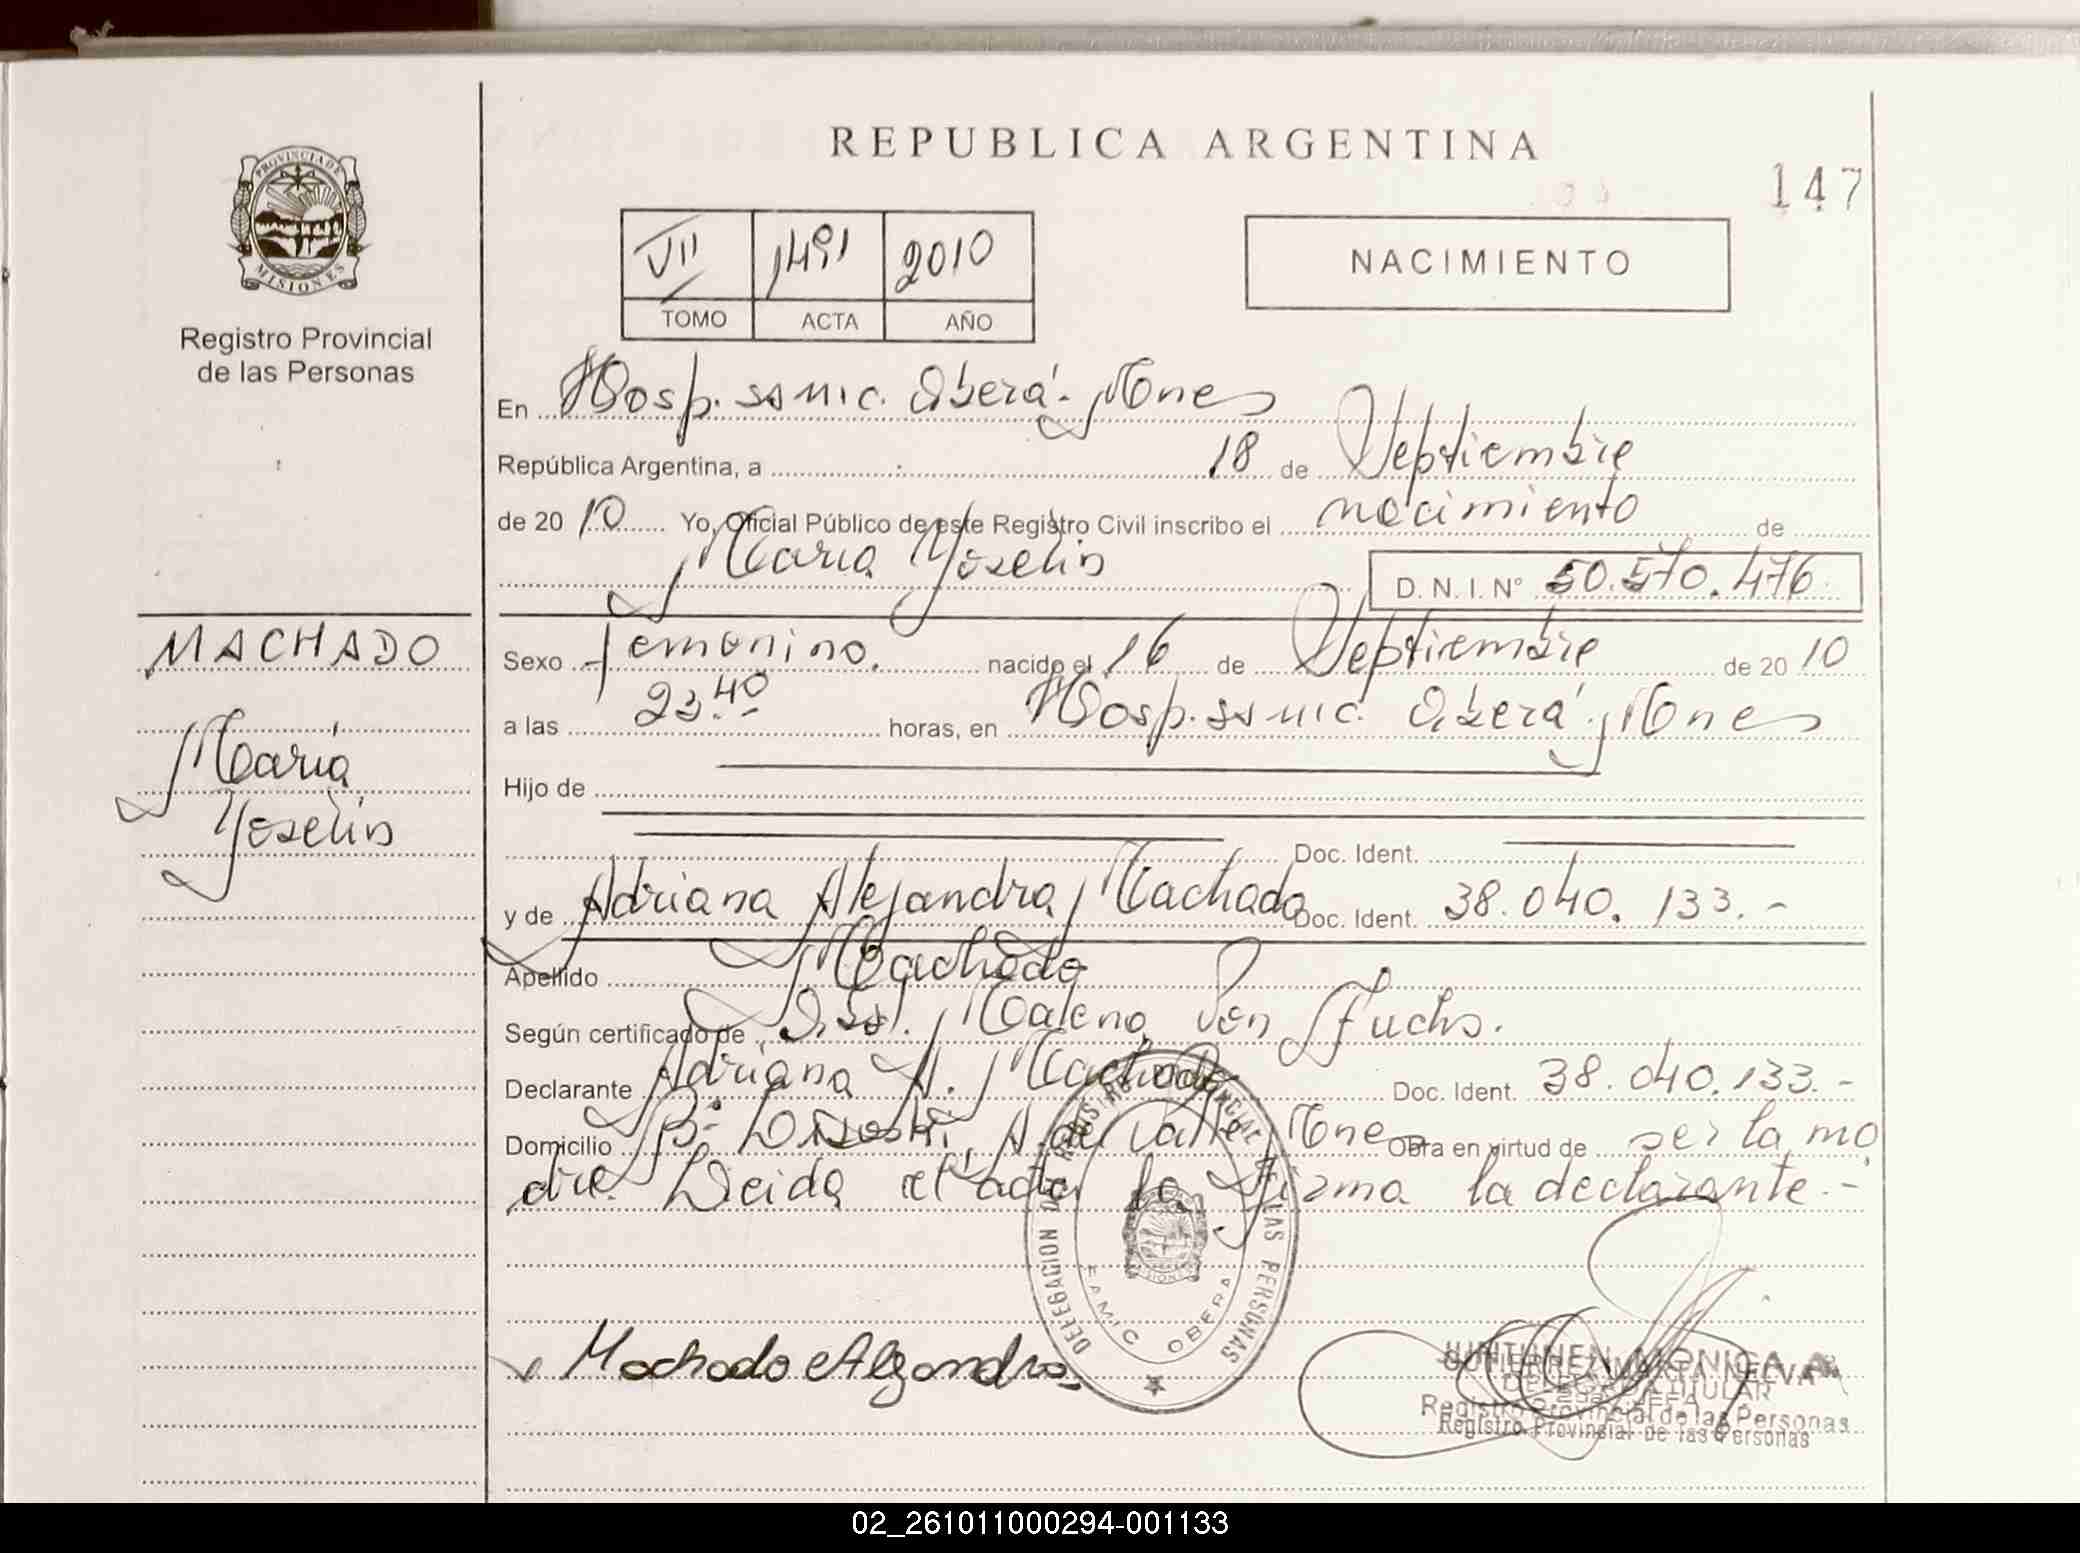 REPUBLICA ARGENTINA
147
PROVINCIA DE
MISIONES
Registro Provincial
de las Personas
VII 1491 2010
TOMO ACTA AÑO
NACIMIENTO
En Hosp. samic. Oberá. Mnes
República Argentina, a 18 de Septiembre
de 2010 Yo, Oficial Público de este Registro Civil inscribo el nacimiento de
Maria Yoselin D. N. I. Nº 50.570.476.
MACHADO
Maria
Yoselin
Sexo femenino. nacido el 16 de Septiembre de 2010
a las 23.40 horas, en Hosp. samic. Oberá. Mnes
Hijo de
Doc. Ident.
y de Adriana Alejandra Machado Doc. Ident. 38.040.133.-
Apellido Machado
Según certificado de Obst. Malena Von Fuchs.
Declarante Adriana A. Machado Doc. Ident. 38.040.133.-
Domicilio Bº A. del Valle Mnes Obra en virtud de ser la ma
dre. Leida el acta la firma la declarante.-
DELEGACION DEL REGISTRO PROVINCIAL DE LAS PERSONAS
SAMIC OBERA
MISIONES
Machado Alejandra
JUNTUNEN MONICA A.
GUTIERREZ MARTA NELVA
DELEGADA TITULAR
Registro Provincial de las Personas
Registro Provincial de las Personas
02_261011000294-001133